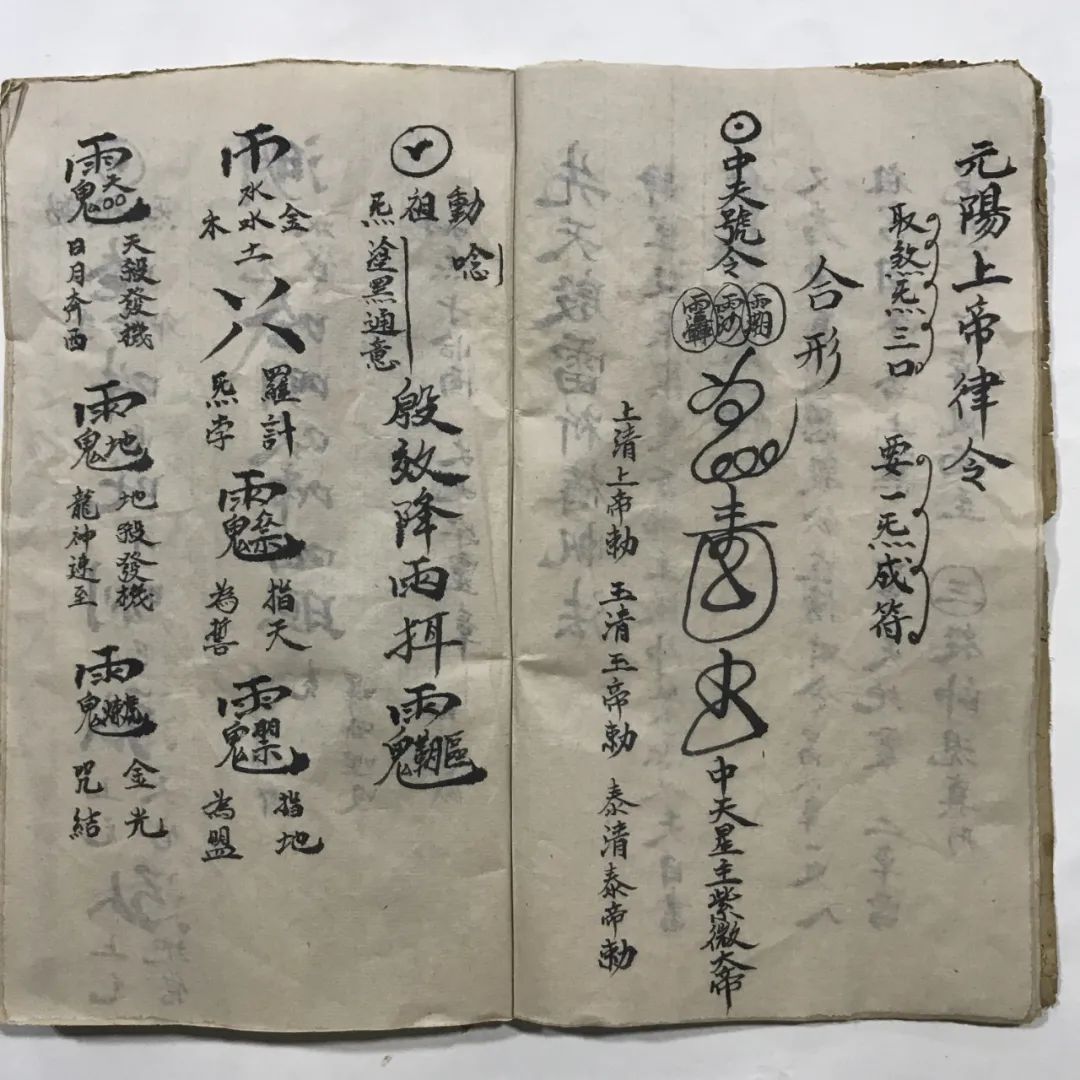 元陽上帝律令
取煞炁三口
要一炁成符
合形
中天號令
中天星主紫微大帝
上清上帝勅
玉清玉帝勅
泰清泰帝勅
動
唸
祖
炁
塗黑通意
殷效降雨揖
金
水水土
木
羅計
炁孛
指天
為誓
指地
為盟
天殺發機
日月奔西
地殺發機
龍神速至
金光
咒結